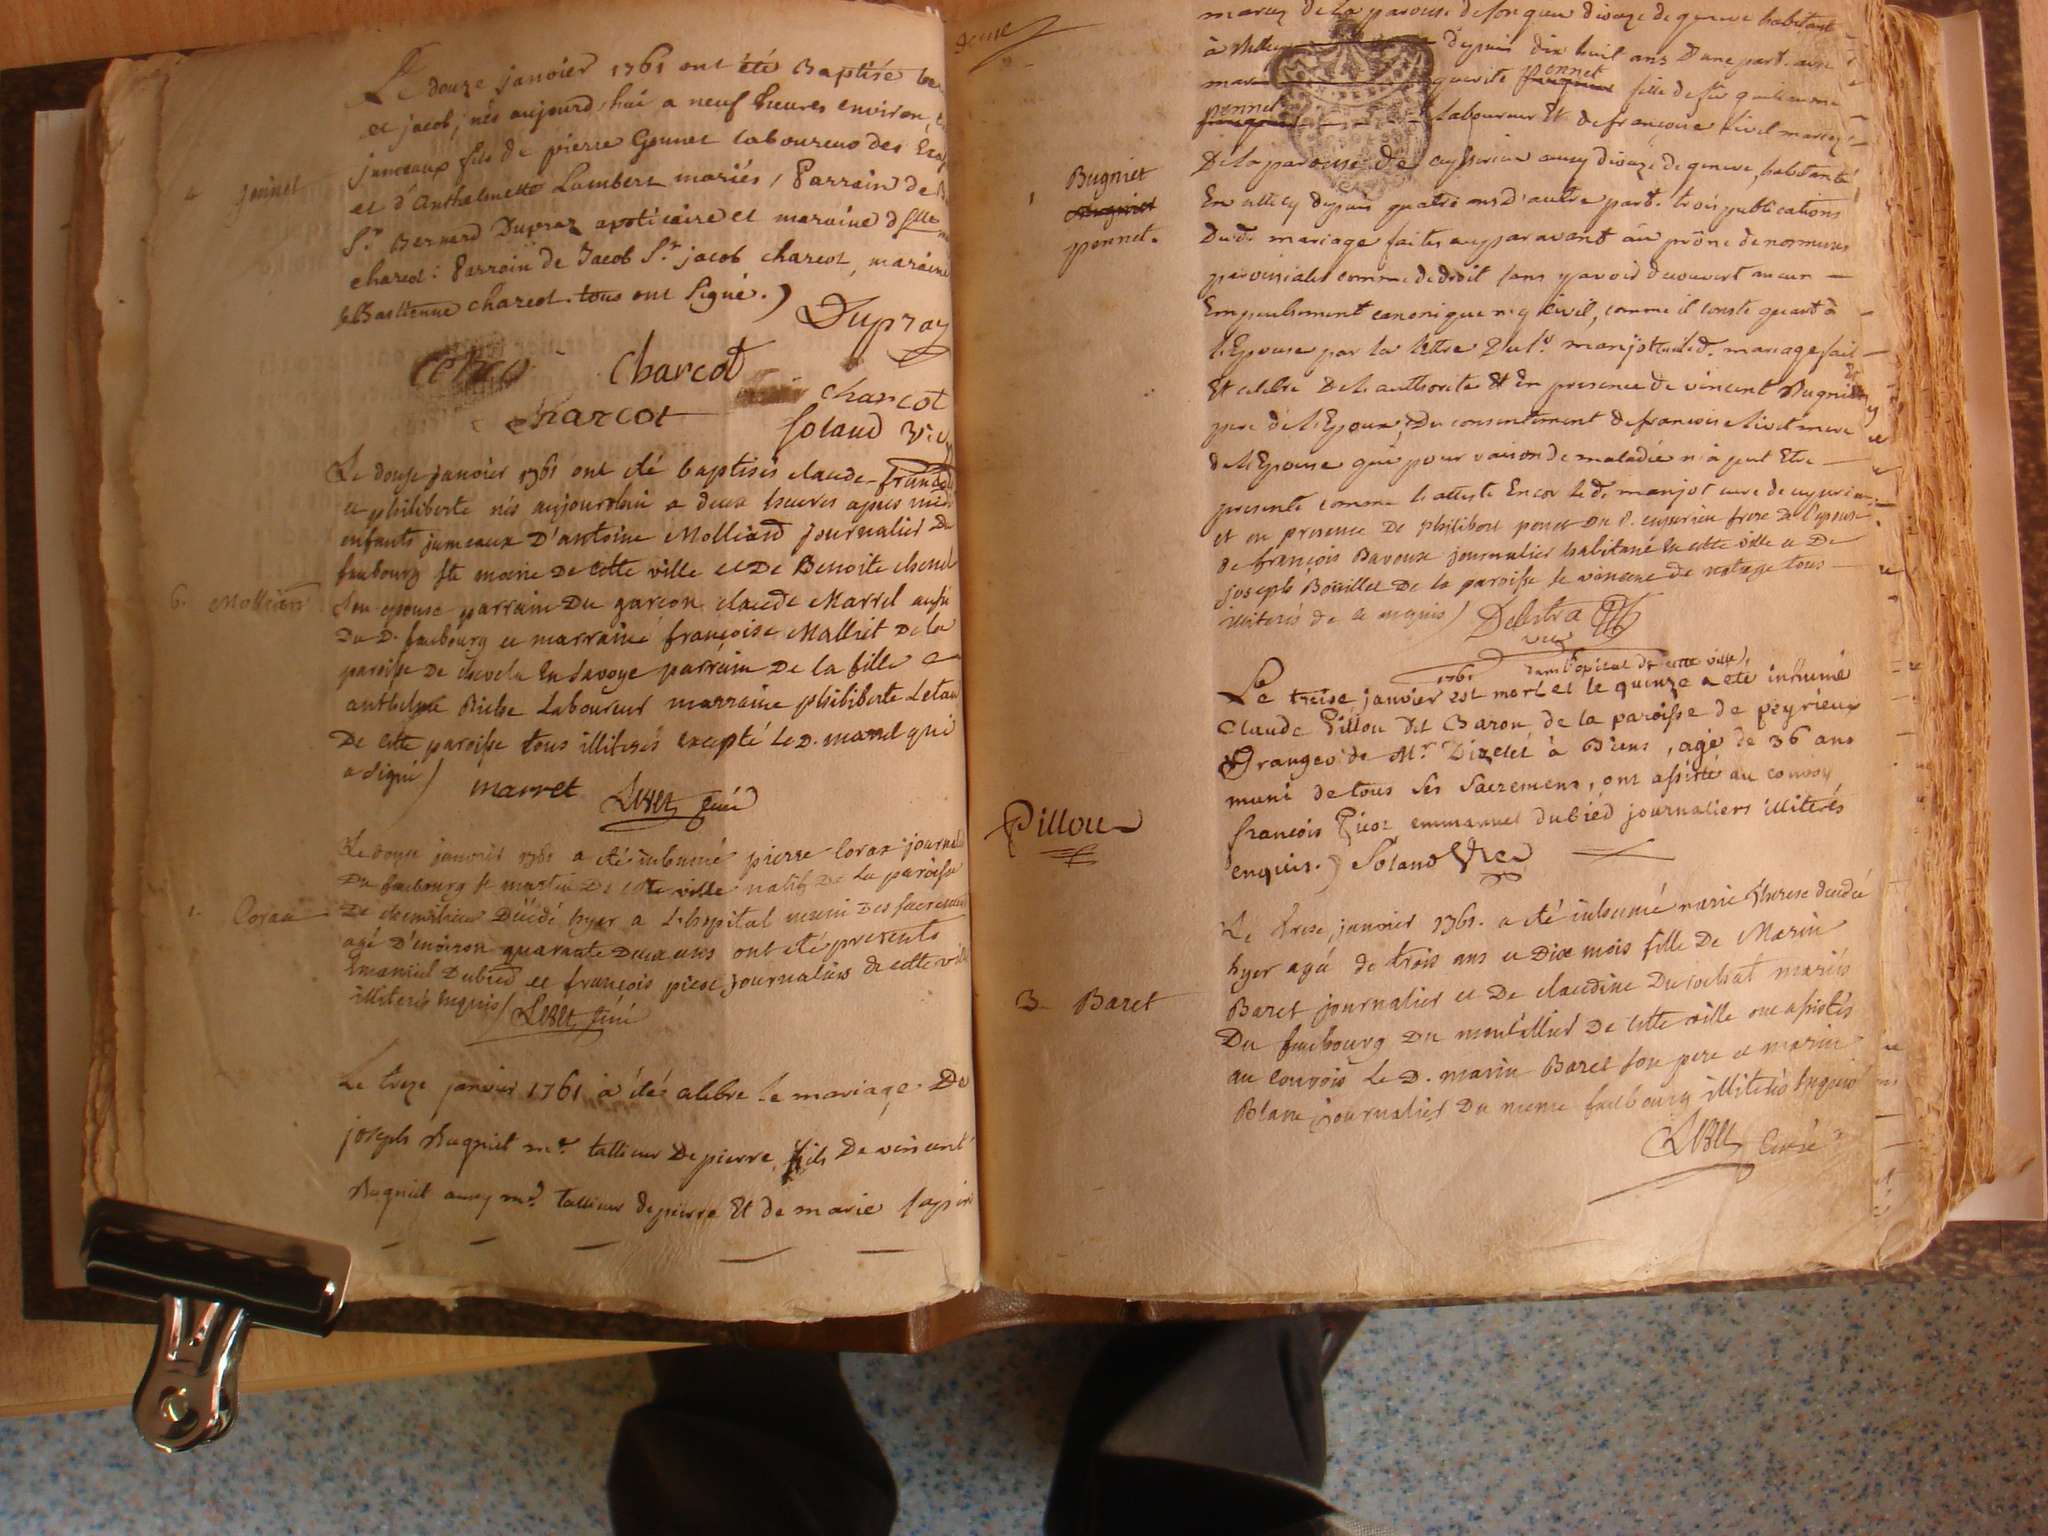 Le douze janvier 1761 ont été Baptisé
et jacob, nés aujourd'hui a neuf heures environ,
jumeaux fils de pierre Gonnet laboureur des
4 gonnet
et d'Anthelmette Lambert mariés, Parrain de
Sr. Bernard Dupraz apoticaire et maraine dlle
charcot: Parrain de Jacob Sr. jacob charcot, maraine
Bastienne charcot. tous ont signé.)
Dupraz
Charcot
charcot
charcot
soland
Le douze janvier 1761 ont été baptisés claude-francois
et philiberte nés aujourdhui a deux heures apres midi
enfants jumeaux D'antoine Molliard journalier Du
faubourg ste marie De cette ville et De Benoite
6. Molliard
son epouse parrain Du garçon claude Marrel aussi
Du D. faubourg et marraine françoise Mallict De la
paroisse De chevelu en savoye parrain De la fille
anthelme Riche Laboureur marraine philiberte
De cette paroisse tous illiterés excepté Le D. marrel qui
a signé/
marret
curé
Le douze janvier 1761 a été inhumé pierre Coraz journal
Du faubourg st martin De cette ville natif De La paroisse
1. Coraz
De Décédé hyer a L'hopital muni Des sacremens
agé D'environ quarante Deux ans ont été presents
Emaniel Dubied et françois picot journaliers de cette ville
illiterés enquis/
curé
Le treze janvier 1761 à étés celebre le mariage De
joseph Bugniet me. tallieur De pierre, fils De vincent
Bugniet aussy me. tallieur de pierre Et de marie
mariez de la paroisse de diocèze de geneve habitant
à depuis dix huit ans D'une part. avec
ponnet
fille de feu guillaume
ponnet
Laboureur Et de francoise livet mariez
Bugniet
ponnet.
De la paroisse de aussy diocèze de geneve, habitante
En depuis quatre ans d'autre part. trois publications
Dudt. mariage faites auparavant au prône de nos messes
parroissiales comme de droit sans y avoir decouvert aucun
Empechement canonique ny Civil, comme il conste quant à
l'Epouse par la lettre manjot mariage fait
Et celebre De l'authorité Et En presence de vincent Bugniet
pere de l'Epoux, Du consentement de francoise livet mere
de l'Epouse qui pour raison de maladie n'a peut Etre
presente comme l'atteste Encor le d. manjot curé de
et en presence De philibert ponet Du d. frere de l'epouse
de françois Bavoux journalier habitané En cette ville et De
joseph Bouillet De la paroisse st vincent de tous
illiterés de ce enquis/
Delestra
1761 dans l'opital de cette ville
Le treise janvier est mort et le quinze a eté inhumé
Claude Pillou dit Baron de la paroisse de peyrieux
Grangé de Mr. à Brens, agé de 36 ans
muni de tous ses sacremens, ont assisté au convoy
Pillou
françois Picot emmanuel dubied journaliers illiterés
enquis.) Soland
Le trese janvier 1761. a été inhumé marie Therese decedée
hyer agée de trois ans et Dix mois fille De Marin
3 Baret
Baret journalier et De claudine Durochat mariés
Du faubourg Du De cette ville ont assistés
au convois Le D. marin Baret son pere et marin
Blanc journalier Du meme faubourg illiterés Enquis
Curé